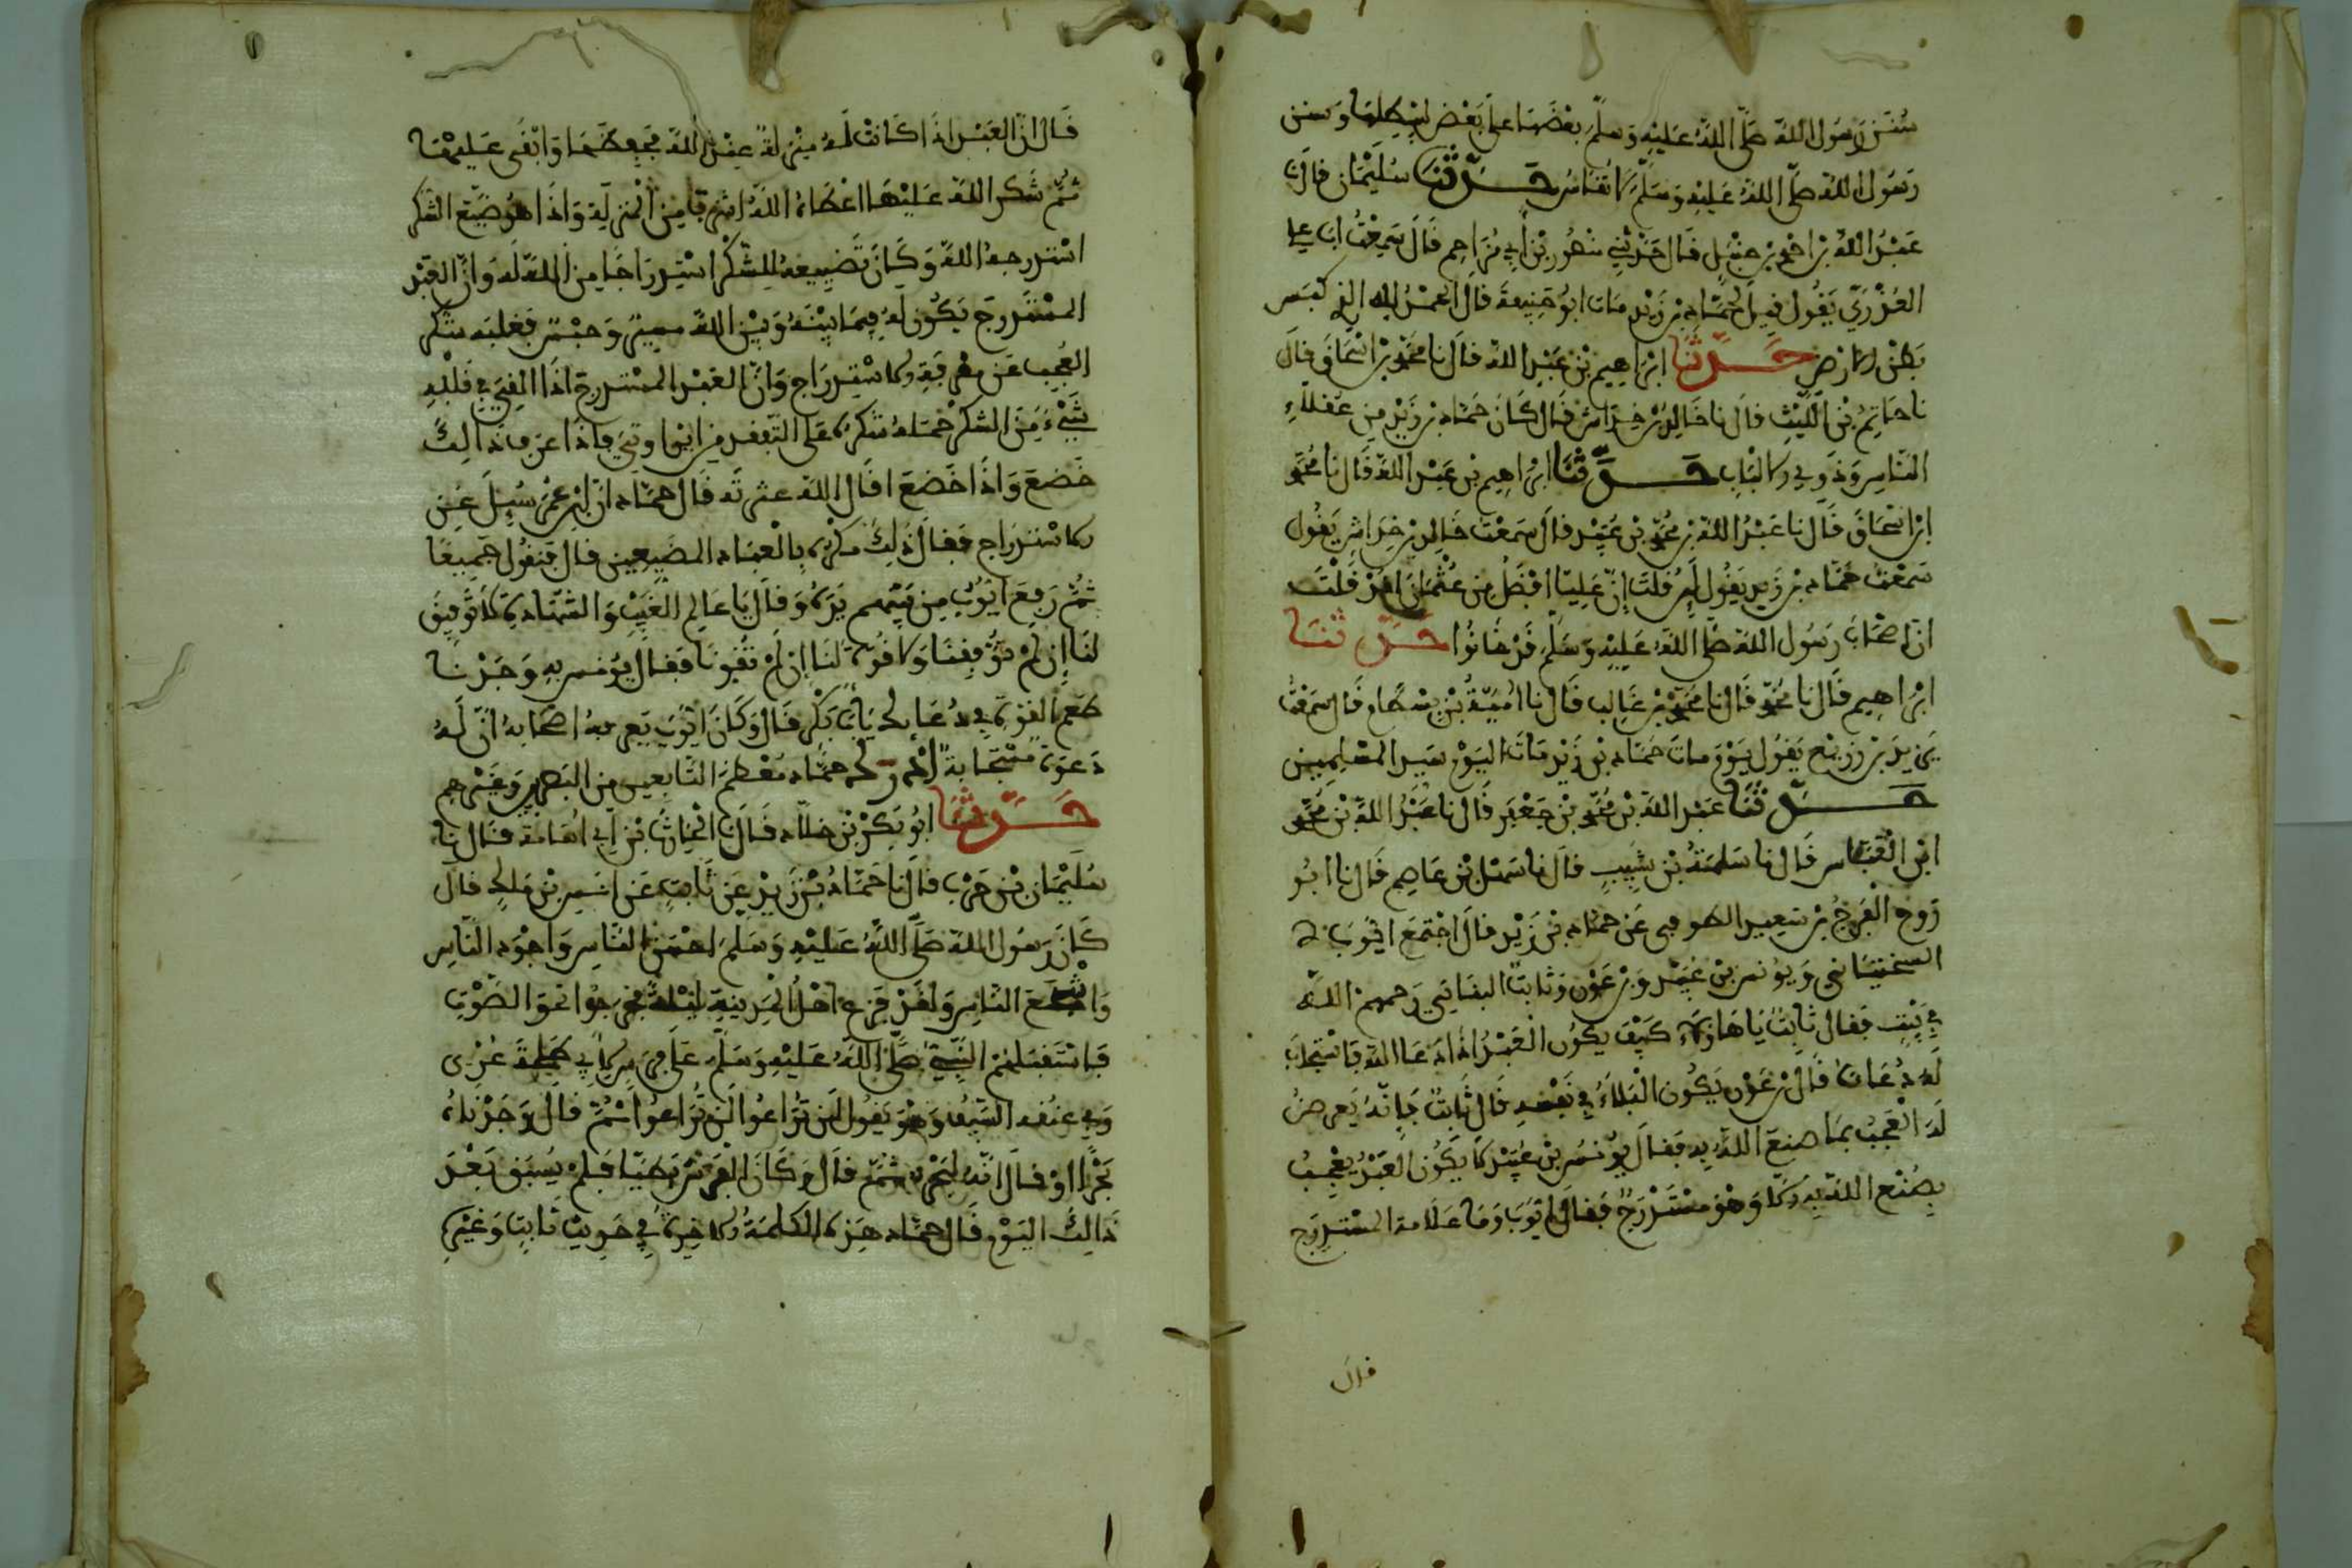 سنن رسول الله صلى الله عليه وسلم بعضها على بعض ليبطلها وسنن
رسول الله صلى الله عليه وسلم لا تقاس حدثنا سليمان قال
عبد الله بن احمد بن حنبل قال حدثني منصور بن أبي مزاحم قال سمعت ابا علي
العذري يقول قيل لحماد بن زيد مات ابو حنيفة قال الحمد لله الذي كبس
بطن الارض حدثنا ابراهيم بن عبد الله قال نا محمد بن اسحاق قال
نا حاتم بن الليث قال نا خالد بن خداش قال كان حماد بن زيد من عقلاء
الناس وذوي الالباب حدثنا ابراهيم بن عبد الله قال نا محمد
ابن اسحاق قال نا عبد الله بن محمد بن عبيد قال سمعت خالد بن خداش يقول
سمعت حماد بن زيد يقول لئن قلت إن عليا افضل من عثمان لقد قلت
ان اصحاب رسول الله صلى الله عليه وسلم قد خانوا حدثنا
ابراهيم قال نا محمد قال نا محمد بن غالب قال نا امية بن بسطام قال سمعت
يزيد بن زريع يقول يوم مات حماد بن زيد مات اليوم سيد المسلمين
حدثنا عبد الله بن محمد بن جعفر قال نا عبد الله بن محمد
ابن العباس قال نا سلمة بن شبيب قال نا سهل بن عاصم قال نا ابو
روح الفرج بن سعيد الصوفي عن حماد بن زيد قال اجتمع ايوب
السختياني ويونس بن عبيد وبن عون وثابت البناني رحمهم الله
في بيت فقال ثابت يا هاؤلاء كيف يكون العبد اذا دعا الله فاستجاب
له دعاءه قال بن عون يكون البلاء في نفسه قال ثابت فإنه يعرض
له العجب بما صنع الله به فقال يونس بن عبيد لا يكون العبد يعجب
بصنع الله به الا وهو مستدرج فقال ايوب وما علامة المستدرج
قال
قال ان العبد اذا كانت له منزلة عند الله فحفظها وابقى عليها
ثم شكر الله عليها اعطاه الله اشرف من المنزلة واذا هو ضيع الشكر
استدرجه الله وكان تضييعه للشكر استدراجا من الله له وان العبد
المستدرج يكون له فيما بينه وبين الله ستر وحبس فغلبه شكر
العجب عن معرفة الاستدراج وان العبد المستدرج اذا القي في قلبه
شيء من الشكر حمله شكره على التفقد من اين اوتي فاذا عرف ذالك
خضع واذا خضع اقال الله عثرته قال حماد ان ابن عمر سئل عن
الاستدراج فقال ذلك مكر بالعباد المضيعين قال فنقول جميعا
ثم رفع ايوب من بينهم يده وقال يا عالم الغيب والشهادة لا توفيق
لنا إن لم توفقنا ولا قوة لنا إن لم تقونا فقال يونس به وجدنا
طعم القوة في دعائك يا أبا بكر قال وكان ايوب يعرفه اصحابه ان له
دعوة مستجابة أدرك حماد معظم التابعين من البصريين وغيرهم
حدثنا ابو بكر بن خلاد قال نا الحارث بن أبي اسامة قال نا
سليمان بن حرب قال نا حماد بن زيد عن ثابت عن انس بن مالك قال
كان رسول الله صلى الله عليه وسلم احسن الناس واجود الناس
واشجع الناس ولقد فزع اهل المدينة ليلة فخرجوا نحو الصوت
فاستقبلهم النبي صلى الله عليه وسلم على فرس لأبي طلحة عري
وفي عنقه السيف وهو يقول لن تراعوا لن تراعوا ثم قال وجدناه
بحرا او قال انه لبحر ثم قال وكان الفرس بطيا فلم يسبق بعد
ذالك اليوم قال حماد هذه الكلمة الاخيرة في حديث ثابت وغيره